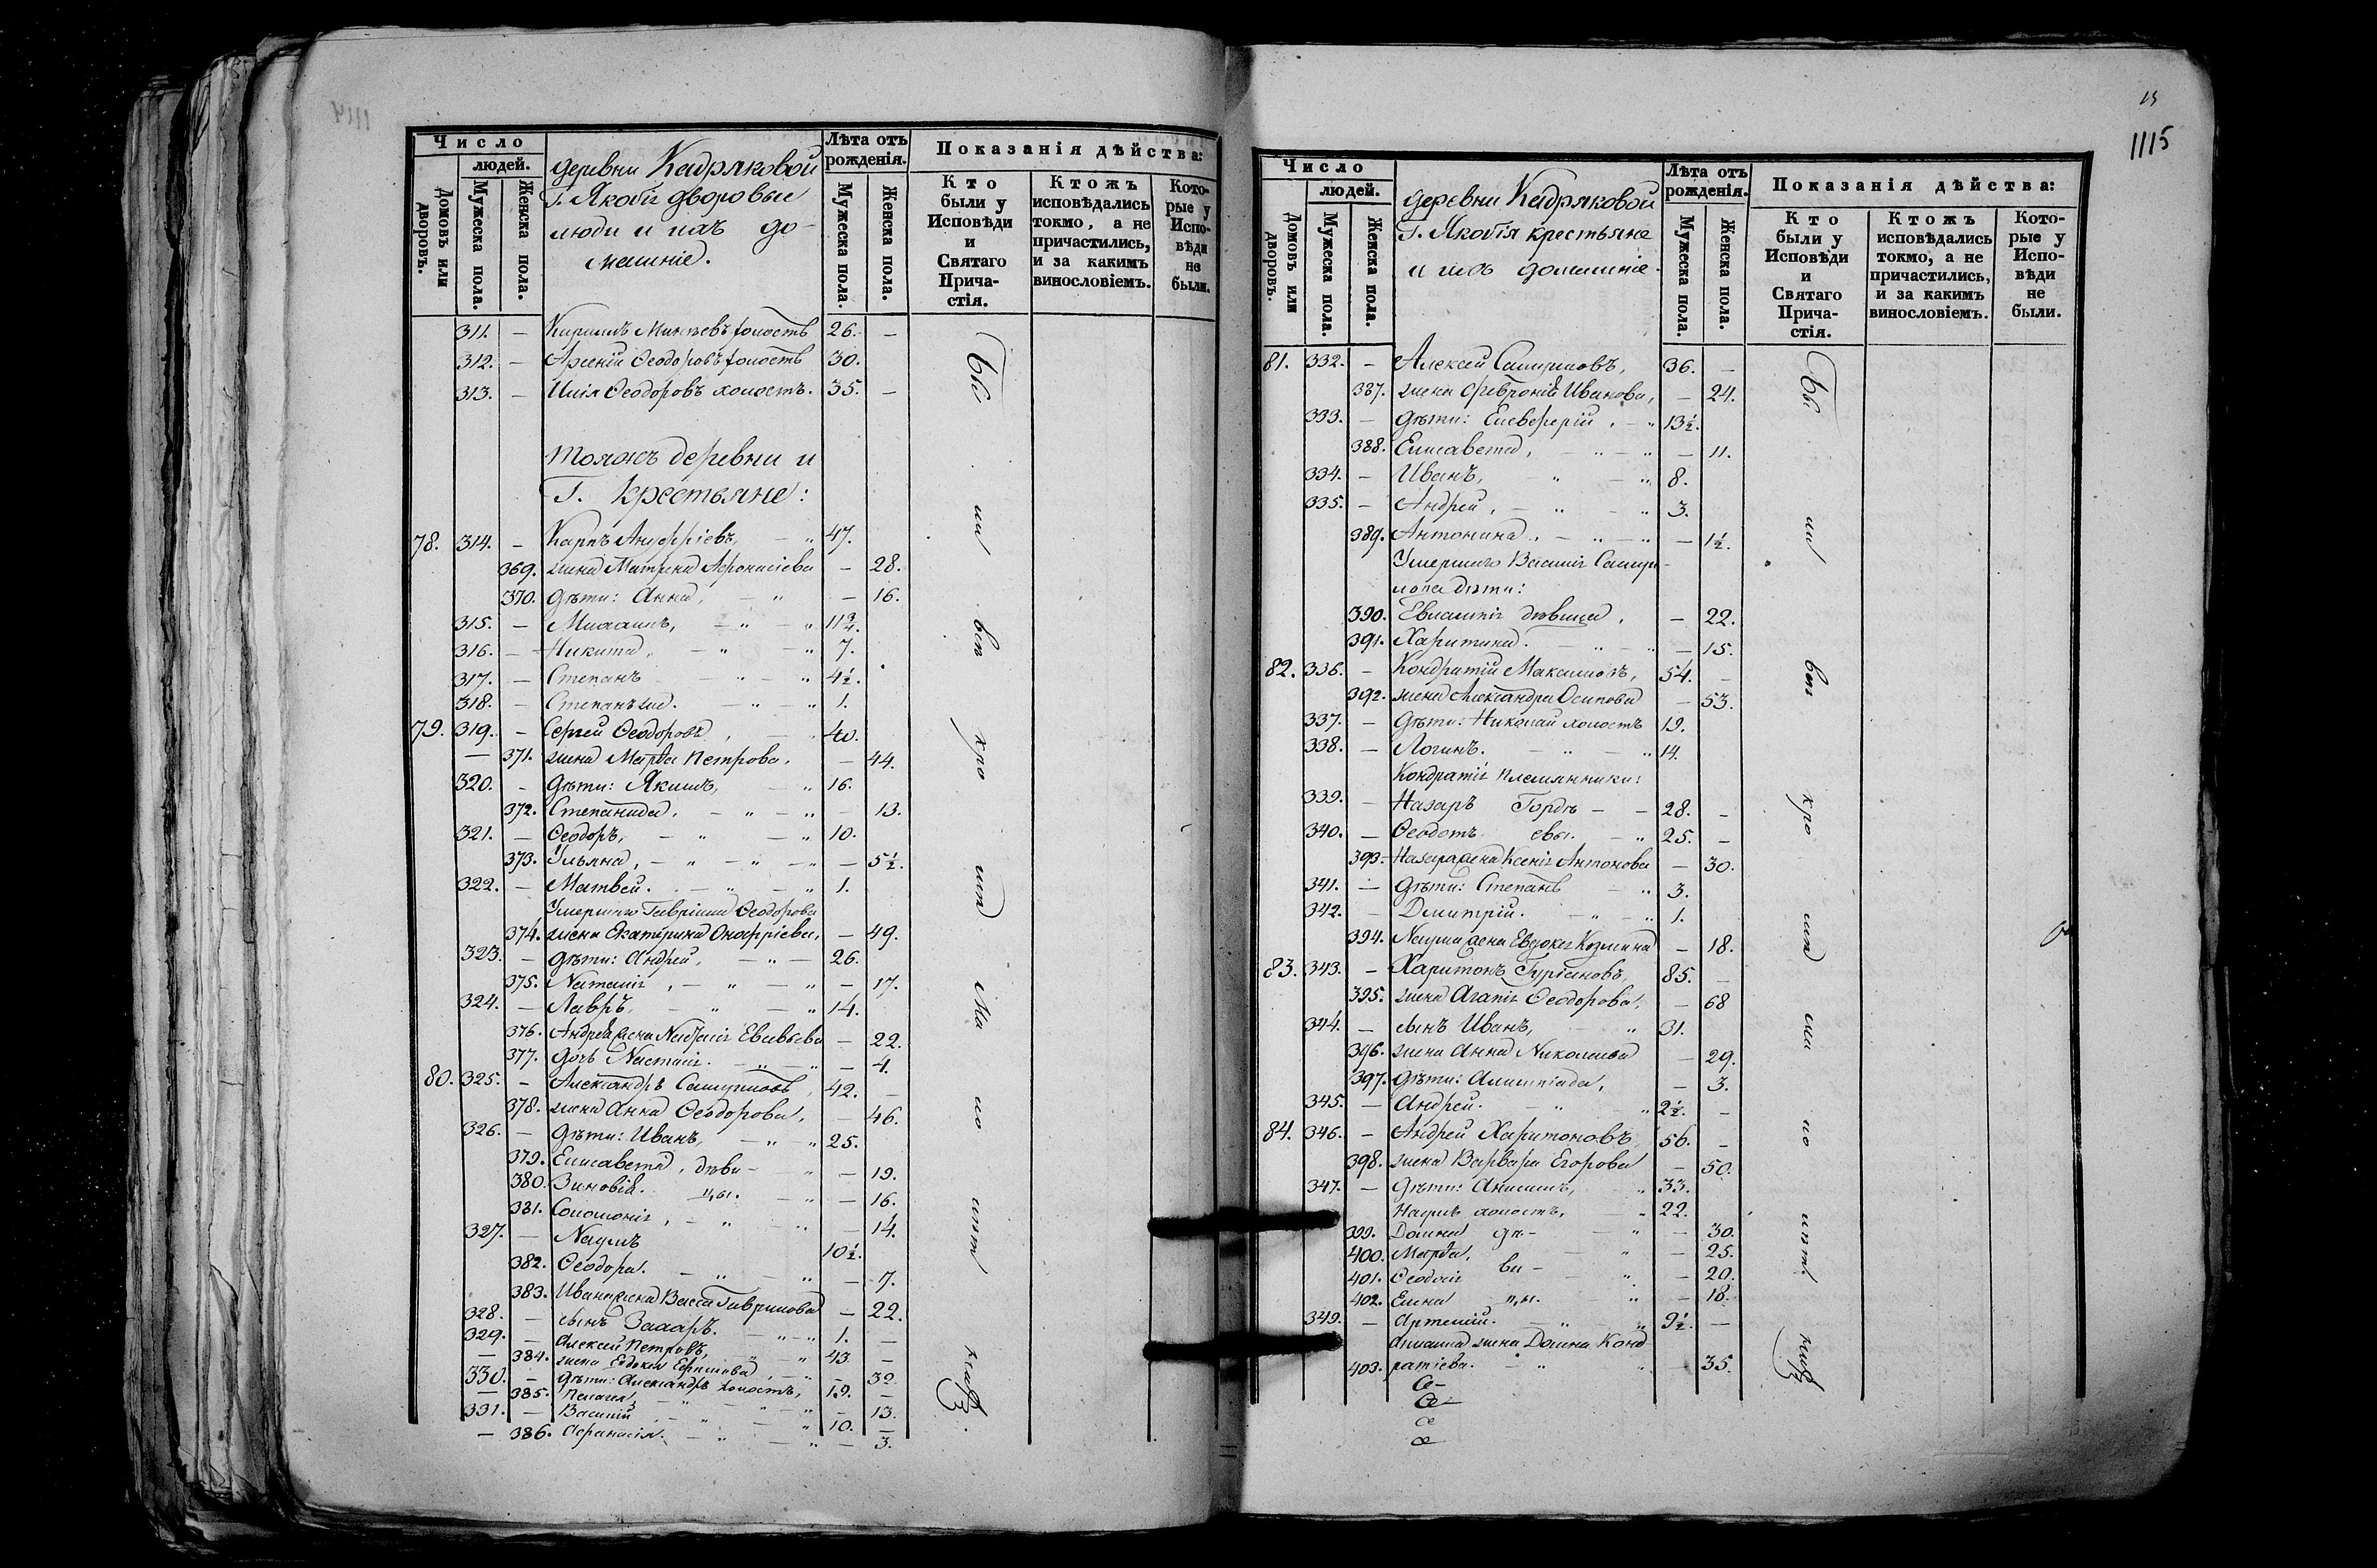 Число
людей.
Домовъ или дворовъ.
Мужеска пола.
Женска пола.
деревни Кадряковой
Г. Якобія дворовыи
люди и ихъ до-
машніе.
Лѣта отъ рожденія.
Мужеска пола.
Женска пола.
Показанія дѣйства:
Кто были у Исповѣди и Святаго Прича-стія.
Ктожъ исповѣдались токмо, а не причастились, и за какимъ винословіемъ.
Кото-рые у Испо-вѣди не были.
311. — Кириллъ Минѣевъ холостъ 26. —
312. — Арсеній Ѳеодоровъ холостъ 30.
313. — Илія Ѳеодоровъ холостъ. 35. —
Тояжъ деревни и
Г. крестьяне:
78. 314. — Карпъ Ануфріевъ, — „ 47.
369. жена Матрена Афонасіева — 28.
370. дѣти: Анна, — „ — 16.
315. — Михаилъ, — „ — „ 11¾.
316. — Никита, — „ — „ 7.
317. — Степанъ — „ — „ 4½.
318. — Степанъ же. — „ — „ 1.
79. 319. — Сергей Ѳеодоровъ, — „ 40.
— 371. жена Марѳа Петрова. — 44.
320. — дѣти: Якимъ, — „ 16.
372. Степанида. — „ — „ 13.
321. — Ѳеодоръ, — „ — „ 10.
373. Ульяна, — „ — „ — „ — 5½.
322. — Матвей. — „ — „ 1.
Умершаго Гавріила Ѳеодорова
374. жена Екатерина Онофріева, — 49.
323. — дѣти: Андрей, — „ — 26.
375. Наталія, — „ — „ — 17.
324. — Лавръ, — „ — „ 14.
376. Андрея жена Евсѣвьева — 22.
377. дочь Настасія. — „ — „ — 4.
80. 325. — Александръ Самуиловъ, 42. —
378. жена Анна Ѳеодорова, — 46.
326. — дѣти: Иванъ, — „ — „ 25.
379. Елисавета, дѣви- „ — 19.
380. Зиновія. цы. — „ — 16.
381. Соломонія, — „ „ — 14.
327. — Наумъ 10½.
382. Ѳеодора. — „ — „ — 7.
383. Ивана жена Васса Гаврилова — 22.
328. — сынъ Захаръ. — „ — „ 1. —
329. — Алексей Петровъ, — „ 43 —
— 384. жена Евдокія Ефимова, — „ — 32.
330. — дѣти: Александръ холостъ, 19. —
— 385. Пелагея, — „ — „ — 13.
331. — Василій — „ — „ 10. —
— 386. Афанасія. — „ — „ — 3.
Бы ли вси кро мѣ ма ло лѣт нихъ
15
1115
Число
людей.
Домовъ или дворовъ.
Мужеска пола.
Женска пола.
деревни Кадряковой
Г. Якобія крестьяне
и ихъ домашніе.
Лѣта отъ рожденія.
Мужеска пола.
Женска пола.
Показанія дѣйства:
Кто были у Исповѣди и Святаго Прича-стія.
Ктожъ исповѣдались токмо, а не причастились, и за какимъ винословіемъ.
Кото-рые у Испо-вѣди не были.
81. 332. — Алексей Самуиловъ, 36. —
387. жена Февронія Иванова, — 24.
333. — дѣти: Елевферій, — „ 13½.
388. Елисавета, — „ — „ — 11.
334. — Иванъ, — „ — „ 8.
335. — Андрей, — „ — „ 3.
389. Антонина, — „ — „ — 1½.
Умершаго Василія Самуи-
лова дѣти:
390. Евлампія дѣвица, — 22.
391. Харитина. — „ — „ — 15.
82. 336. — Кондратій Максимовъ, 54. —
392. жена Александра Осипова — 53.
337. — дѣти: Николай холостъ 19.
338. — Логинъ. — „ — „ 14.
Кондратія племянники:
339. — Назаръ Гордѣ- — 28. —
340. — Ѳеодотъ евы. — „ 25. —
393. Назара жена Ксенія Антонова — 30.
341. — дѣти: Степанъ — „ 3.
342. — Дмитрій. — „ — „ 1.
394. Наума жена Евдокія Козмина — 18.
83. 343. — Харитонъ Гуріановъ, 85. —
395. жена Агапія Ѳеодорова, — 68
344. — сынъ Иванъ, — „ 31.
396. жена Анна Николаева — 29.
397. дѣти: Олимпіада, — 3.
345. — Андрей. — „ — „ 2½. —
84. 346. — Андрей Харитоновъ 56. —
398. жена Варвара Егорова — 50.
347. — дѣти: Анисимъ, „ 33.
Наумъ холостъ, — „ 22.
399. Домна дѣ- — „ — 30.
400. Марѳа, — „ — 25.
401. Ѳеодосія ви- — „ — 20.
402. Елена цы. „ — 18.
349. — Артемій. — „ — „ 9½. —
жена Домна Конд
403. ратіева. — „ „ — 35.
Бы ли вси кро мѣ ма ло лѣт нихъ